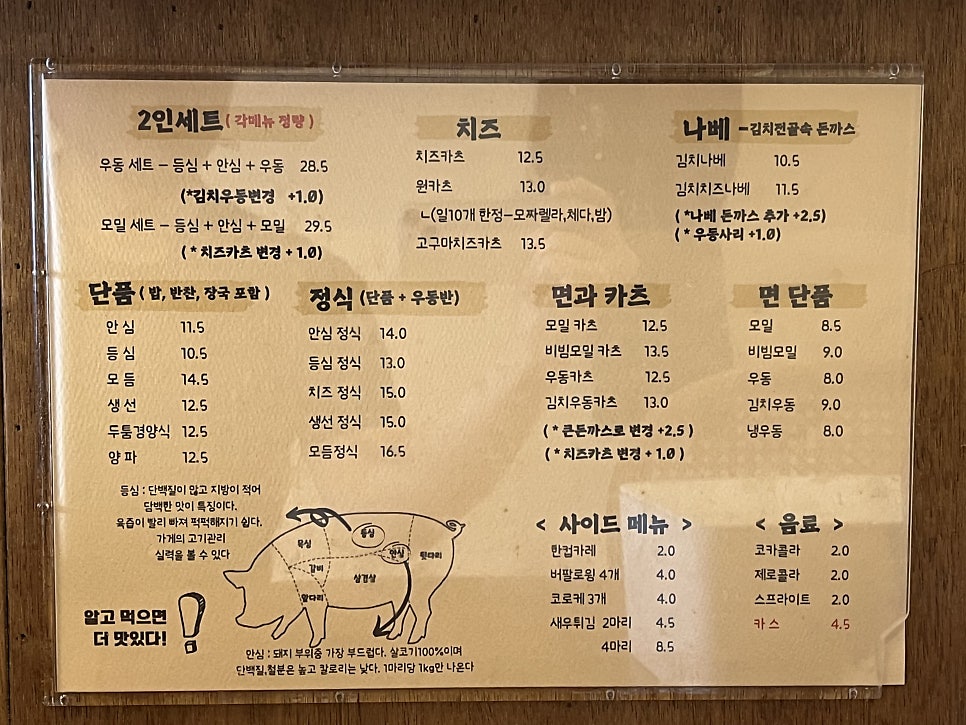 2인세트 ( 각메뉴 정량 )
우동 세트 – 등심 + 안심 + 우동 28.5
(*김치우동변경 +1.0)
모밀 세트 – 등심 + 안심 + 모밀 29.5
( * 치즈카츠 변경 + 1.0)
치즈
치즈카츠 12.5
원카츠 13.0
ㄴ(일10개 한정–모짜렐라,체다,밤)
고구마치즈카츠 13.5
나베 –김치전골속 돈까스
김치나베 10.5
김치치즈나베 11.5
( *나베 돈까스 추가 +2.5)
( * 우동사리 +1.0)
단품 ( 밥, 반찬, 장국 포함 )
안 심 11.5
등 심 10.5
모 듬 14.5
생 선 12.5
두툼경양식 12.5
양 파 12.5
정식 (단품 + 우동반)
안심 정식 14.0
등심 정식 13.0
치즈 정식 15.0
생선 정식 15.0
모듬정식 16.5
면과 카츠
모밀 카츠 12.5
비빔모밀 카츠 13.5
우동카츠 12.5
김치우동카츠 13.0
( * 큰돈까스로 변경 +2.5 )
( * 치즈카츠 변경 + 1.0 )
면 단품
모밀 8.5
비빔모밀 9.0
우동 8.0
김치우동 9.0
냉우동 8.0
등심 : 단백질이 많고 지방이 적어
담백한 맛이 특징이다.
육즙이 빨리 빠져 퍽퍽해지기 쉽다.
가게의 고기관리
실력을 볼 수 있다
알고 먹으면
더 맛있다!
목심
등심
안심
뒷다리
갈비
삼겹살
앞다리
안심 : 돼지 부위중 가장 부드럽다. 살코기100%이며
단백질,철분은 높고 칼로리는 낮다. 1마리당 1kg만 나온다
< 사이드 메뉴 >
한컵카레 2.0
버팔로윙 4개 4.0
코로케 3개 4.0
새우튀김 2마리 4.5
4마리 8.5
< 음료 >
코카콜라 2.0
제로콜라 2.0
스프라이트 2.0
카스 4.5